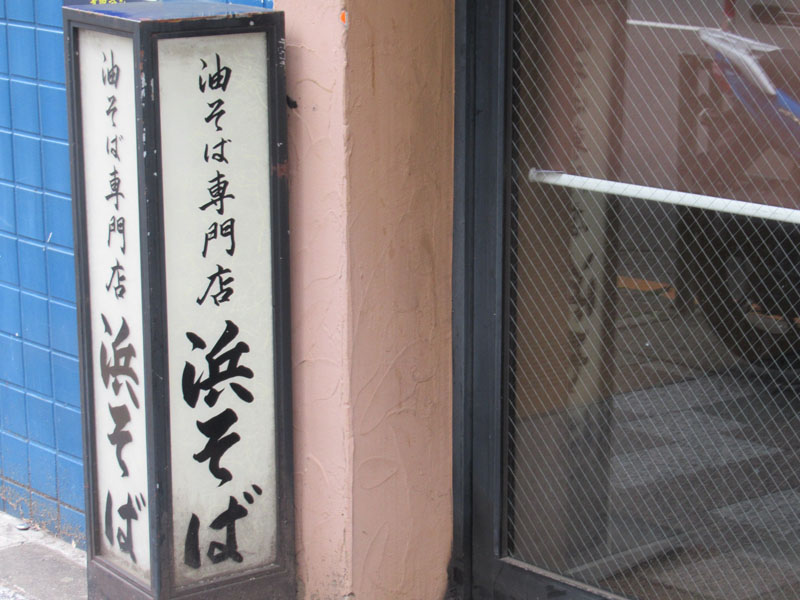 油そば専門店
浜そば
油そば専門店
浜そば